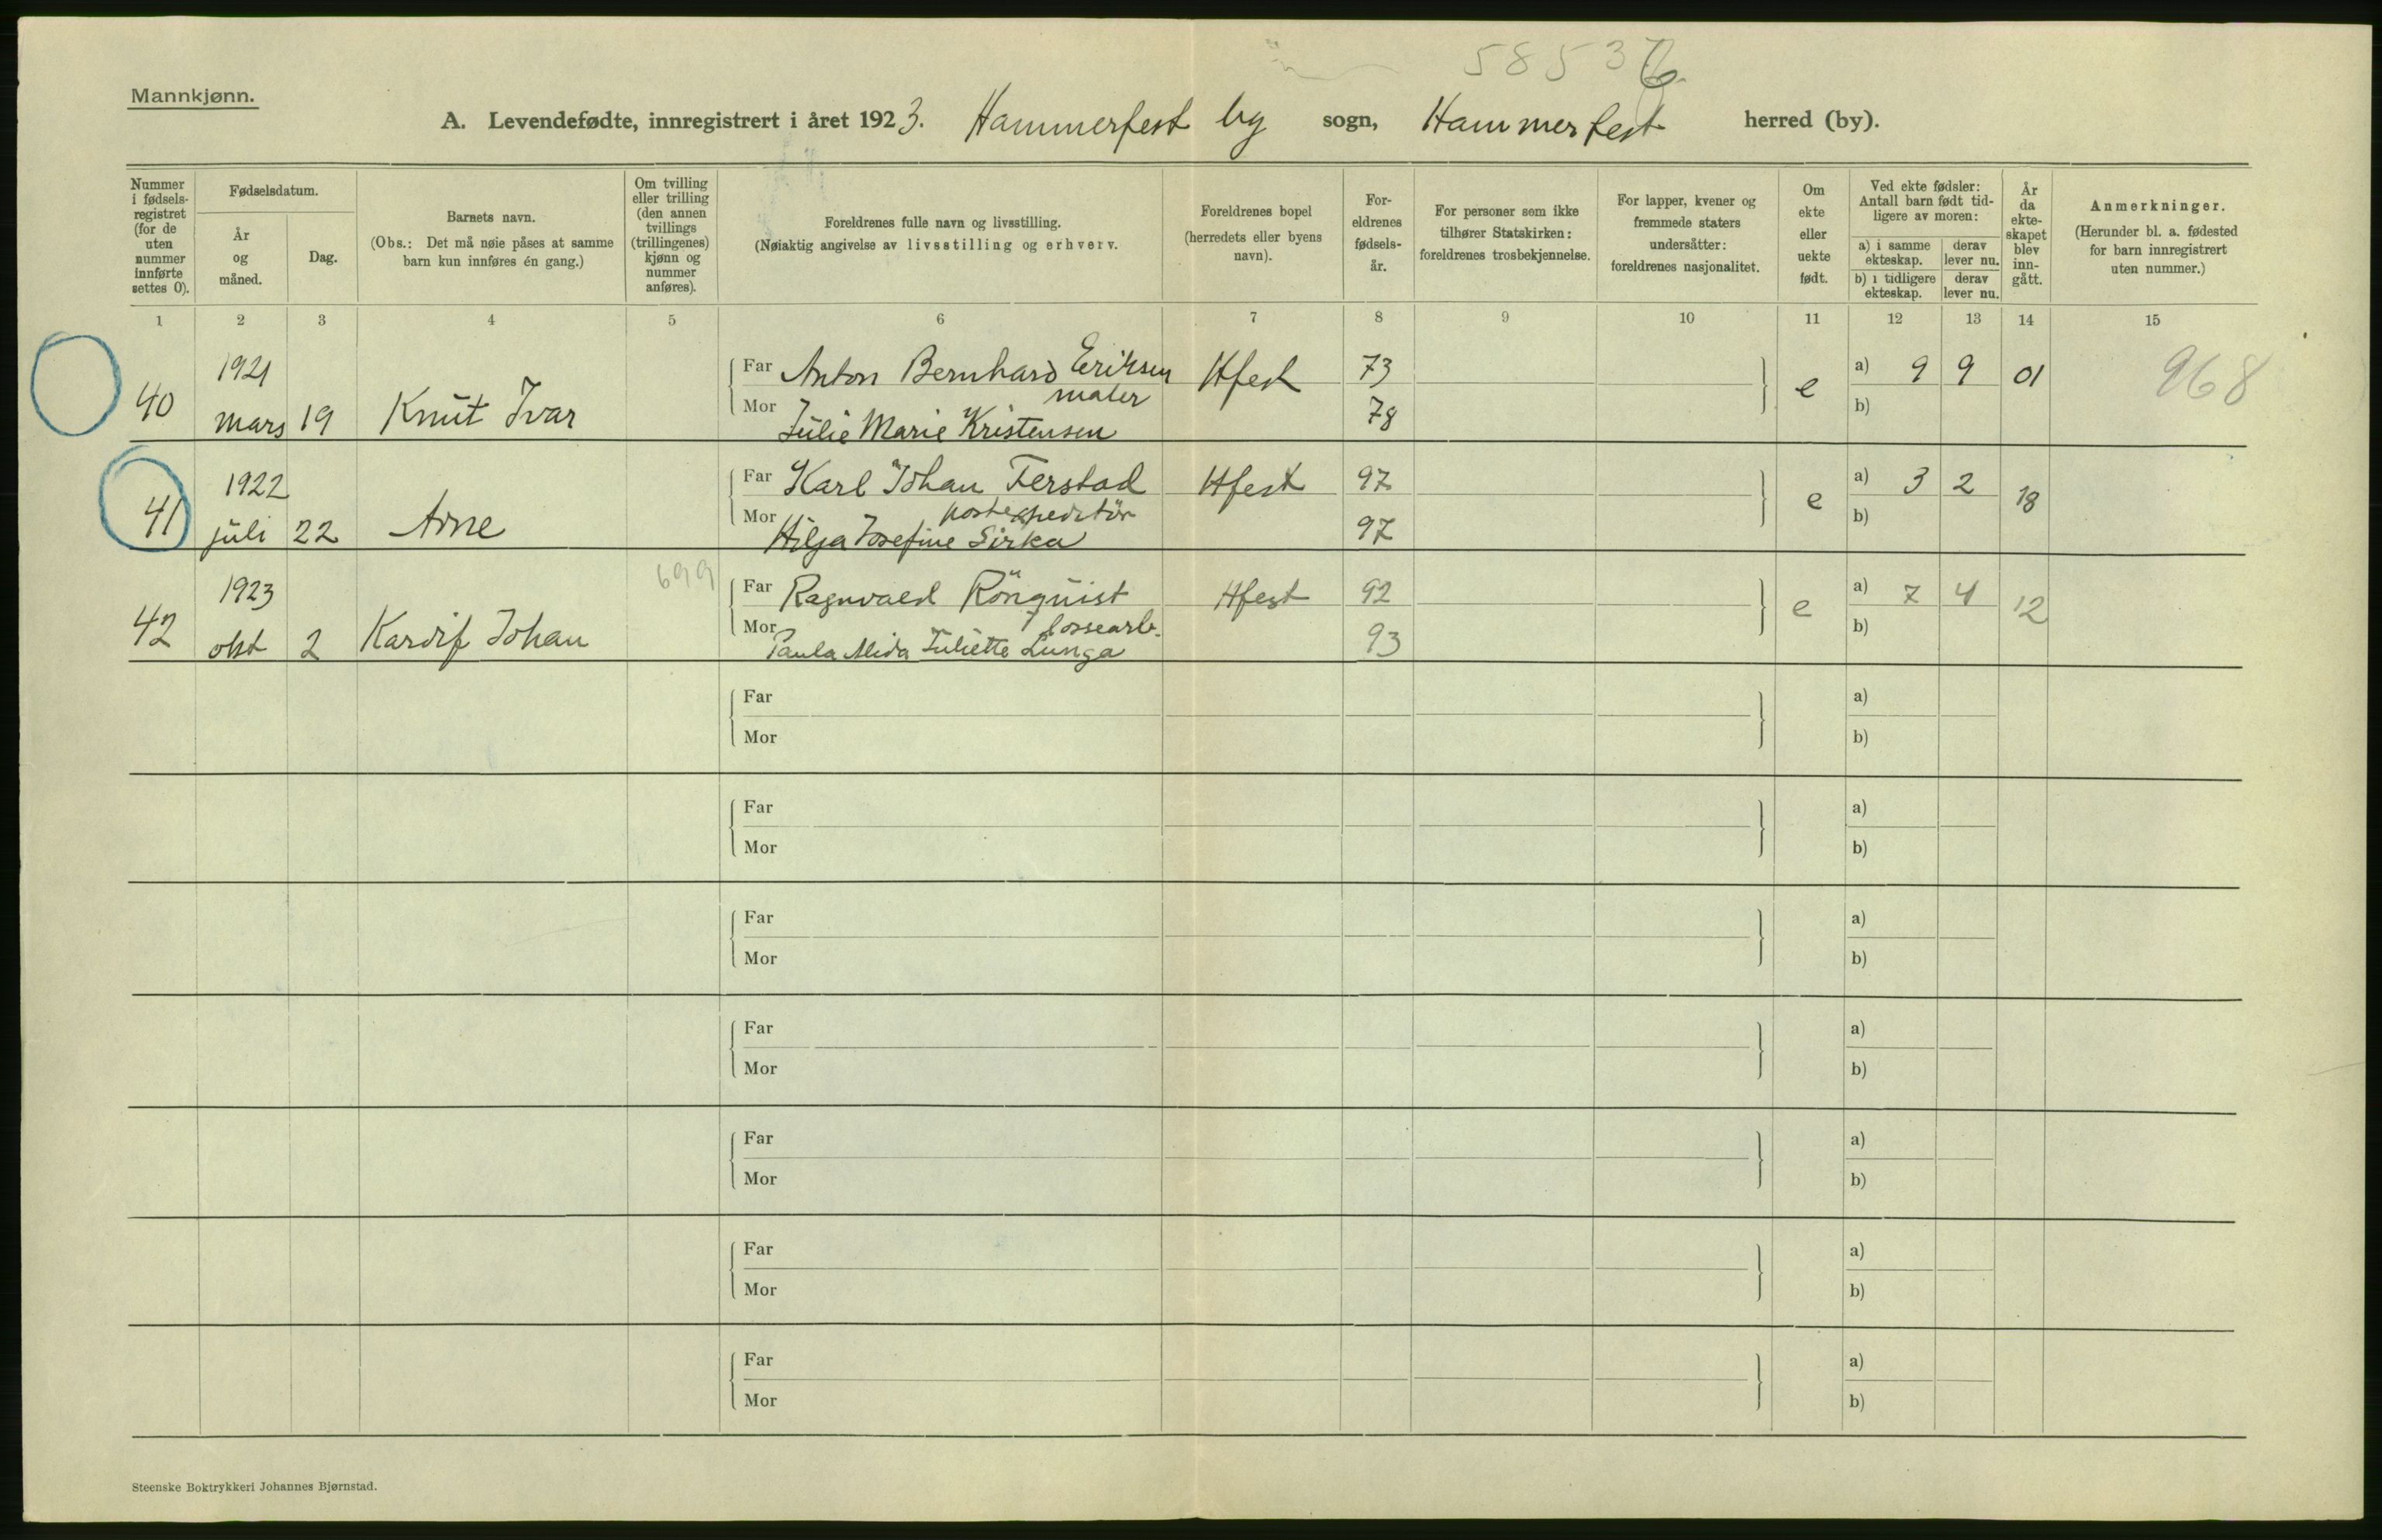 58536
Mannkjønn.
A. Levendefødte, innregistrert i året 1923. Hammerfest by sogn, Hammerfest herred (by).
Nummer i fødsels-registret (for de uten nummer innførte settes 0).
Fødselsdatum.
År og måned.
Dag.
Barnets navn.
(Obs.: Det må nøie påses at samme barn kun innføres én gang.)
Om tvilling eller trilling (den annen tvillings (trillingenes) kjønn og nummer anføres).
Foreldrenes fulle navn og livsstilling.
(Nøiaktig angivelse av livsstilling og erhverv.
Foreldrenes bopel (herredets eller byens navn).
For-eldrenes fødsels-år.
For personer som ikke tilhører Statskirken: foreldrenes trosbekjennelse.
For lapper, kvener og fremmede staters undersåtter: foreldrenes nasjonalitet.
Om ekte eller uekte født.
Ved ekte fødsler: Antall barn født tid-ligere av moren:
a) i samme ekteskap.
derav lever nu.
b) i tidligere ekteskap.
derav lever nu.
År da ekte-skapet blev inn-gått.
Anmerkninger.
(Herunder bl. a. fødested for barn innregistrert uten nummer.)
1 2 3 4 5 6 7 8 9 10 11 12 13 14 15
1921 Far Anton Bernhard Eriksen Hfest 73 a) 9 9 01 968
maler
40 mars 19 Knut Ivar Mor Julie Marie Kristensen 78 e b)
1922 Far Karl Johan Ferstad Hfest 97 a) 3 2 18
postexpeditör
41 juli 22 Arne Mor Hilja Josefine Sirka 97 e b)
699
1923 Far Ragnvald Rönquist Hfest 92 a) 7 4 12
lossearb.
42 okt 2 Kardif Johan Mor Paula Alida Juliette Lunga 93 e b)
Far a)
Mor b)
Far a)
Mor b)
Far a)
Mor b)
Far a)
Mor b)
Far a)
Mor b)
Far a)
Mor b)
Far a)
Mor b)
Steenske Boktrykkeri Johannes Bjørnstad.